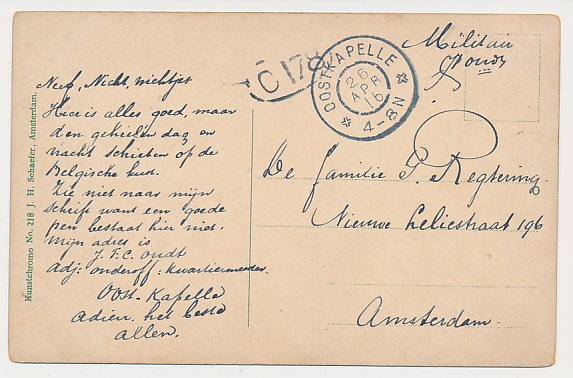 Neef, Nicht, nichtjes
Hier is alles goed, maar
den geheelen dag en
nacht schieten op de
Belgische kust.
Zie niet naar mijn
schrift want een goede
pen bestaat hier niet.
Mijn adres is
J. F. C. Oudt
Adj: onderoff: kwartiermeester
Oost-Kapelle
adieu, het beste
allen.
Kunstchromo No. 218 J. H. Schaefer, Amsterdam.
C 178
OOSTKAPELLE
26
APR
16
4-8N
Militair
De familie P. Regtering.
Nieuwe Leliestraat 196
Amsterdam.